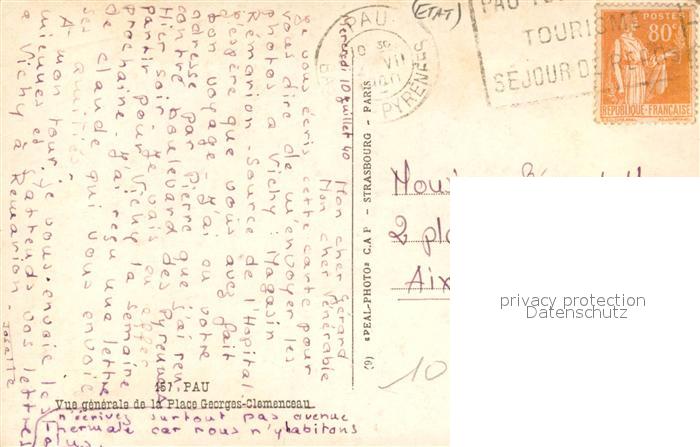 PAU
(ETAT)
10
VII
PYRENEES
PAU
TOURISME
SÉJOUR DE
POSTES
80c
REPUBLIQUE-FRANÇAISE
Mercredi 10 Juillet 40
Mon cher Gérard
Mon cher Vénérable
Je vous écris cette carte pour
vous dire de m'envoyer les
photos à Vichy : Magasin
Rémarion - Source de l'Hôpital
J'espère que vous avez fait
bon voyage - J'ai eu votre
adresse par Pierre que j'ai ren
contré boulevard des Pyrénées
Hier soir. Je vais en effet
partir pour Vichy la semaine
prochaine. J'ai reçu une lettre
de Claude qui vous envoie
ses amitiés.
A mon tour, je vous envoie les
miennes et j'attends vos lettres
à Vichy à Rémarion - Josette
n'écrivez surtout pas avenue
Thermale car nous n'y habitons
plus.
167. PAU
Vue générale de la Place Georges-Clemenceau
(9) «PEAL-PHOTO» C.A.P - STRASBOURG - PARIS
2 pl
Aix
10
privacy protection
Datenschutz